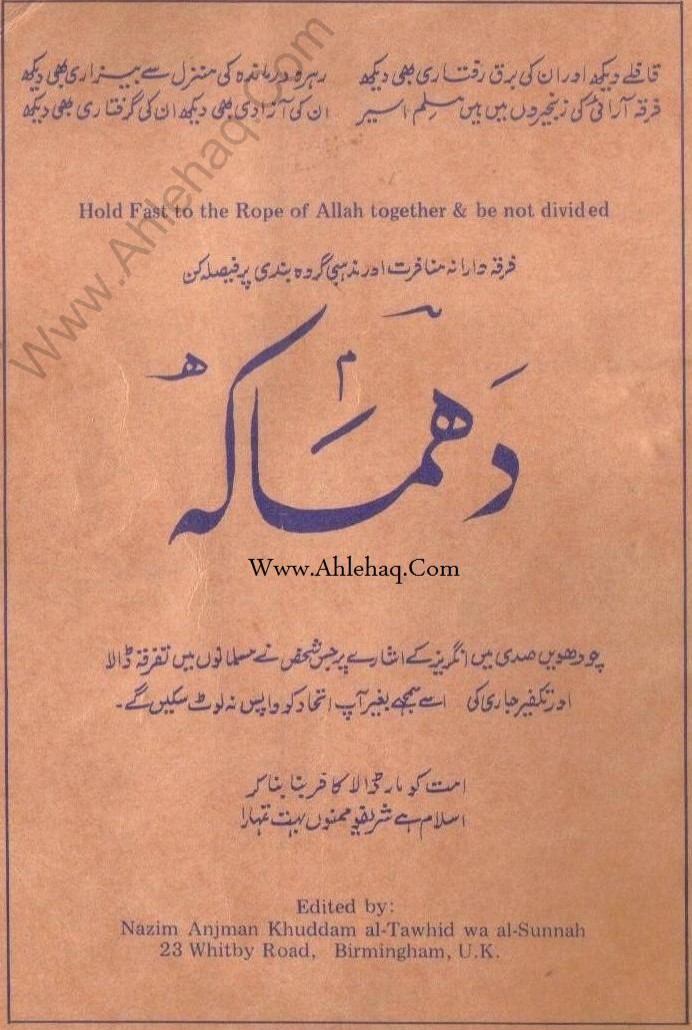 قافلے دیکھ اور ان کی برق رفتاری بھی دیکھ رہروِ درماندہ کی منزل سے بیزاری بھی دیکھ
فرقہ آرائی کی زنجیروں میں ہیں مسلم اسیر ان کی آزادی بھی دیکھ ان کی گرفتاری بھی دیکھ
Hold Fast to the Rope of Allah together & be not divided
فرقہ دارانہ منافرت اور مذہبی گروہ بندی پر فیصلہ کن
دھماکہ
Www.Ahlehaq.Com
چودھویں صدی میں انگریز کے اشارے پر جس شخص نے مسلمانوں میں تفرقہ ڈالا
اور تکفیر جاری کی اسے سمجھے بغیر آپ اتحاد کو واپس نہ لوٹ سکیں گے۔
امت کو مار ڈالا کافر بنا بنا کر
اسلام ہے شریفو ممنوں بہت تمہارا
Edited by:
Nazim Anjman Khuddam al-Tawhid wa al-Sunnah
23 Whitby Road, Birmingham, U.K.
www.Ahlehaq.Com